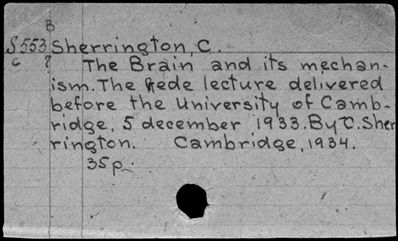 B
S553 Sherrington, C.
c 8 The Brain and its mechan-
ism. The Rede lecture delivered
before the University of Camb-
ridge, 5 december 1933. By C. Sher
rington. Cambridge, 1934.
35p.